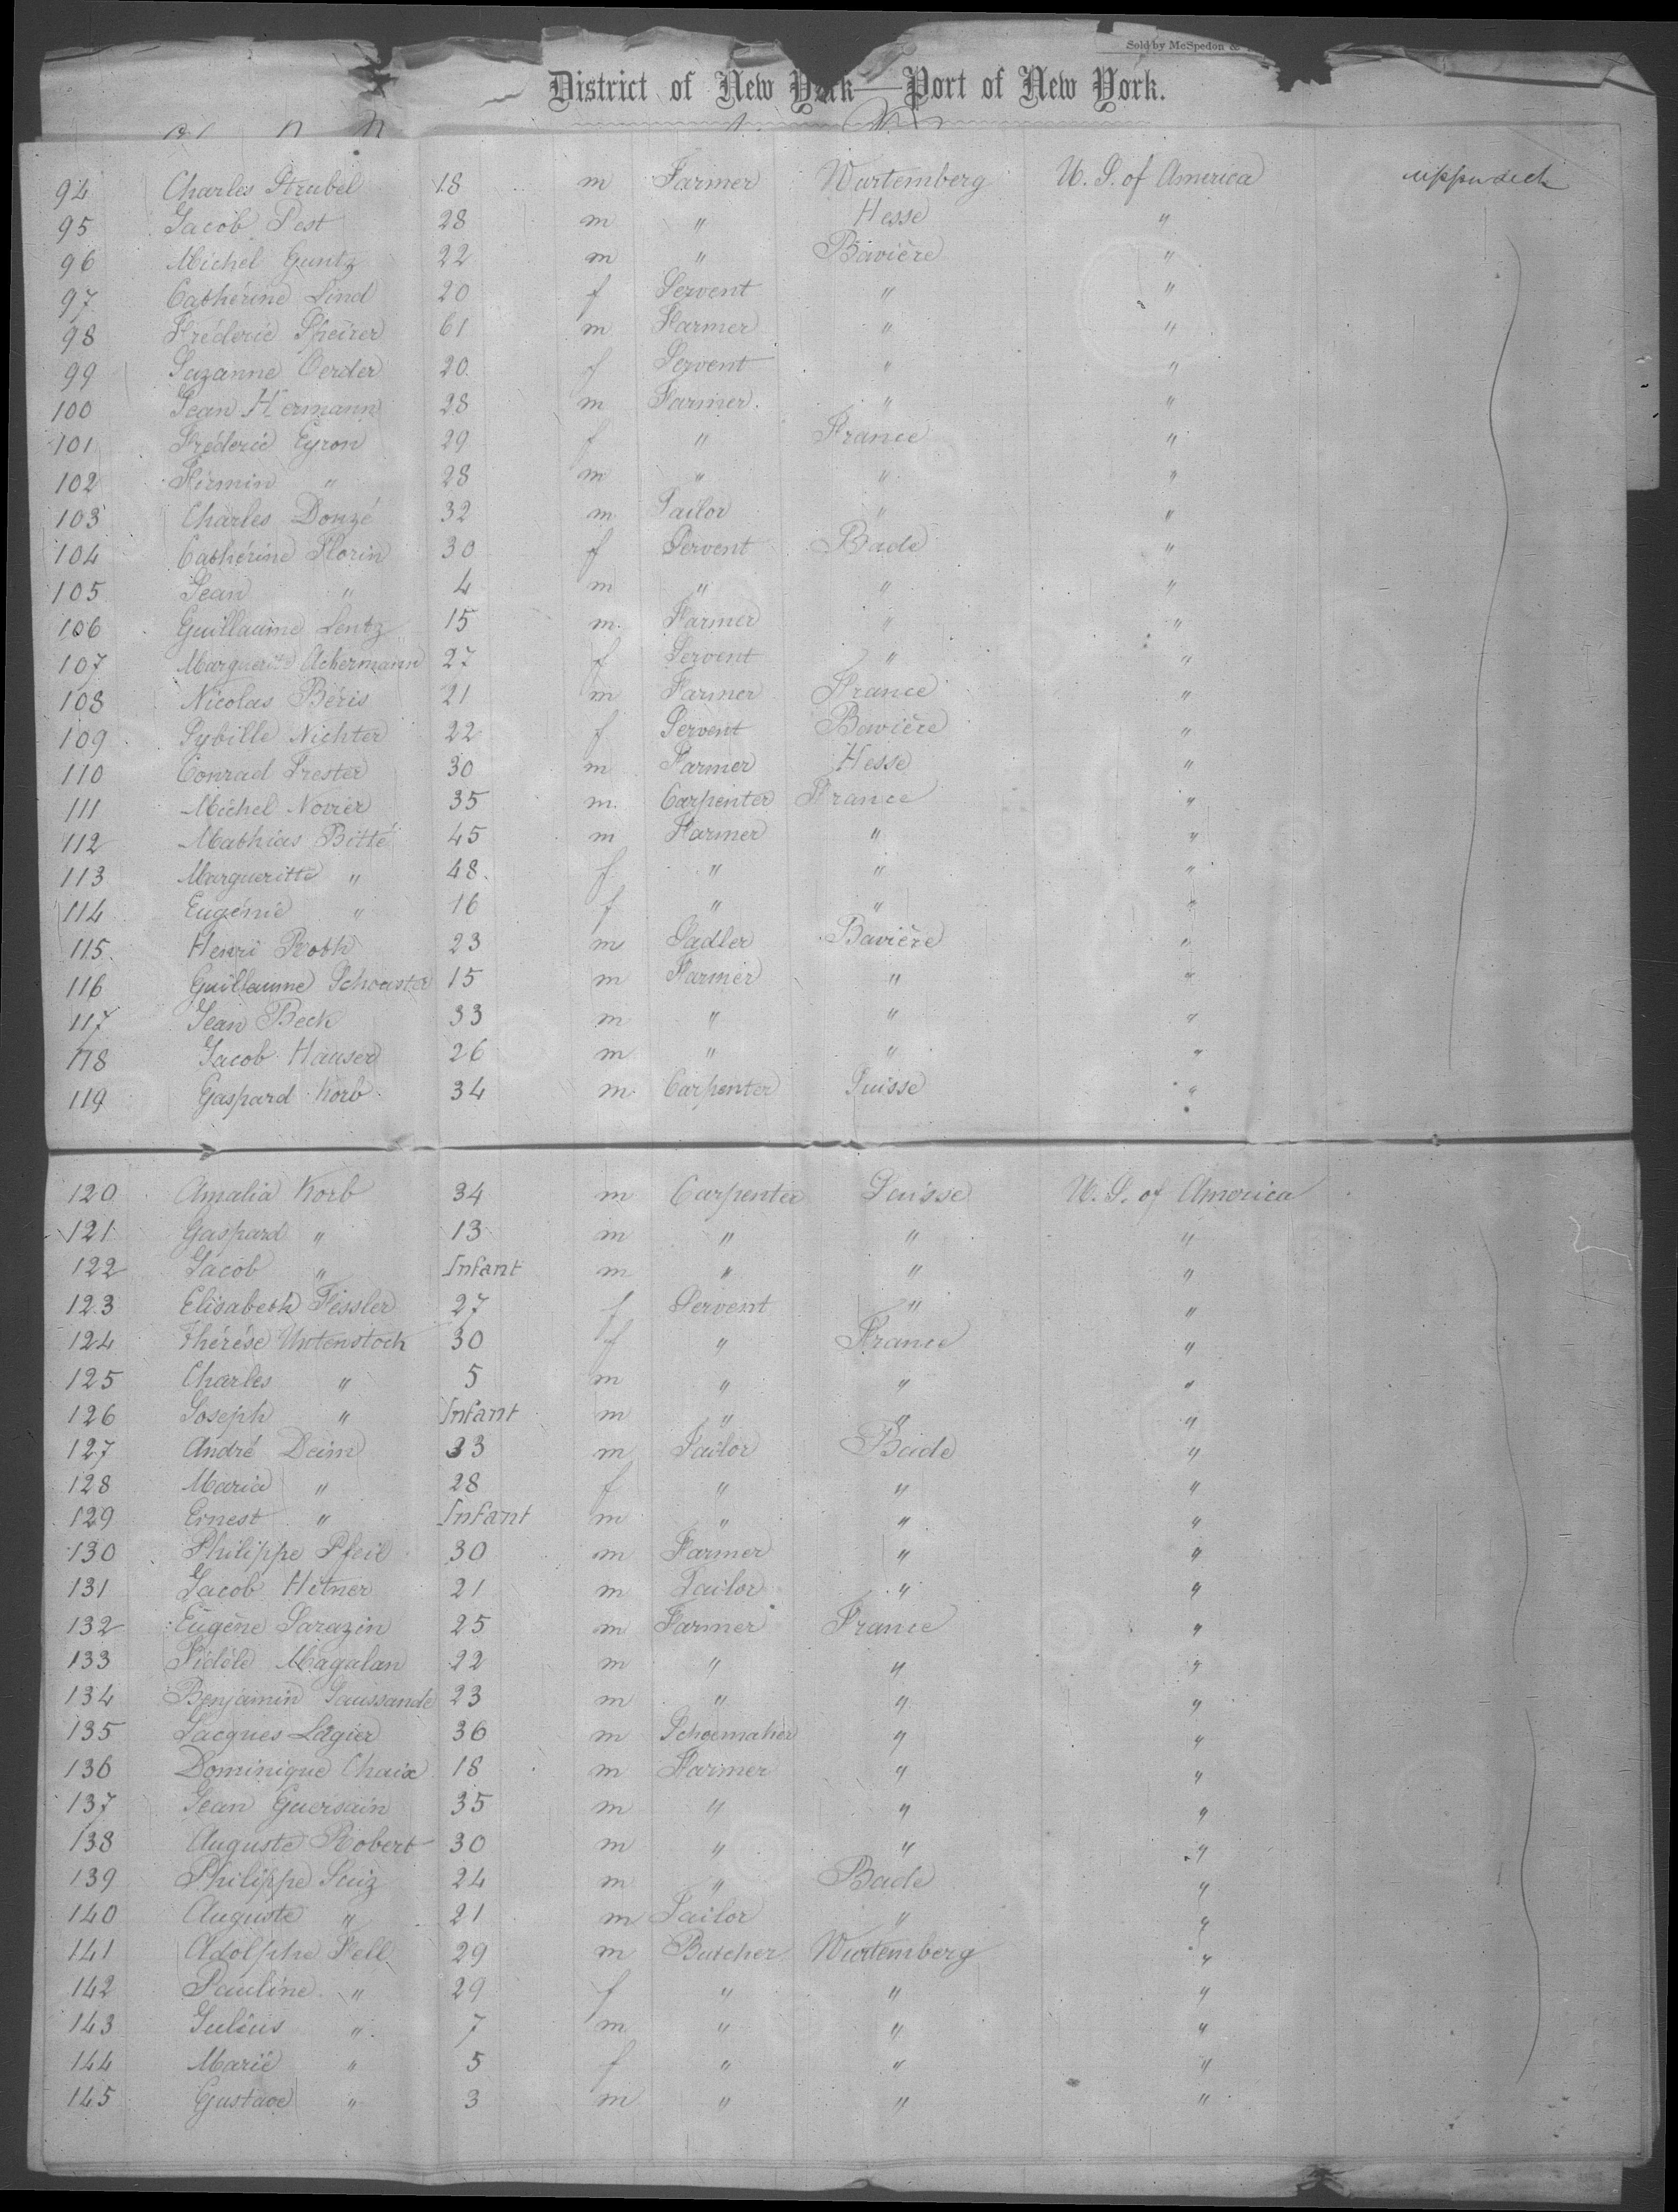 Sold by McSpedon &
District of New York—Port of New York.
94 Charles Strubel 18 m Farmer Wurtemberg U. S. of America upper deck
95 Jacob Pest 28 m " Hesse "
96 Michel Guntz 22 m " Bavière "
97 Cathérine Lind 20 f Servent " "
98 Fréderic Speirer 61 m Farmer " "
99 Suzanne Oerder 20 f Servent " "
100 Jean Hermann 28 m Farmer " "
101 Fréderic Eyron 29 f " France "
102 Firmin " 28 m " " "
103 Charles Donzé 32 m Tailor " "
104 Cathérine Florin 30 f Servent Bade "
105 Jean " 4 m " " "
106 Guillaume Lentz 15 m Farmer " "
107 Marguerite Ackermann 27 f Servent " "
108 Nicolas Béris 21 m Farmer France "
109 Sybille Nichter 22 f Servent Bavière "
110 Conrad Prester 30 m Farmer Hesse "
111 Michel Novier 35 m Carpenter France "
112 Mathias Bitté 45 m Farmer " "
113 Margueritte " 48 f " " "
114 Eugénie " 16 f " " "
115 Henri Roth 23 m Sadler Bavière "
116 Guillaume Schoester 15 m Farmer " "
117 Jean Beck 33 m " " "
118 Jacob Hauser 26 m " " "
119 Gaspard Korb 34 m Carpenter Suisse "
120 Amalia Korb 34 m Carpenter Suisse U. S. of America
121 Gaspard " 13 m " " "
122 Jacob " Infant m " " "
123 Elisabeth Fissler 27 f Servent " "
124 Thérése Untenstock 30 f " France "
125 Charles " 5 m " " "
126 Joseph " Infant m " " "
127 André Deim 33 m Tailor Bade "
128 Maria " 28 f " " "
129 Ernest " Infant m " " "
130 Philippe Pfeil 30 m Farmer " "
131 Jacob Hitner 21 m Tailor " "
132 Eugène Sarazin 25 m Farmer France "
133 Fidèle Magalan 22 m " " "
134 Benjamin Jaussande 23 m " " "
135 Jacques Lagier 36 m Schoemaker " "
136 Dominique Chaix 18 m Farmer " "
137 Jean Guersain 35 m " " "
138 Auguste Robert 30 m " " "
139 Philippe Suiz 24 m " Bade "
140 Auguste " 21 m Tailor " "
141 Adolphe Fell 29 m Butcher Wurtemberg "
142 Pauline " 29 f " " "
143 Julius " 7 m " " "
144 Marie " 5 f " " "
145 Gustave " 3 m " " "